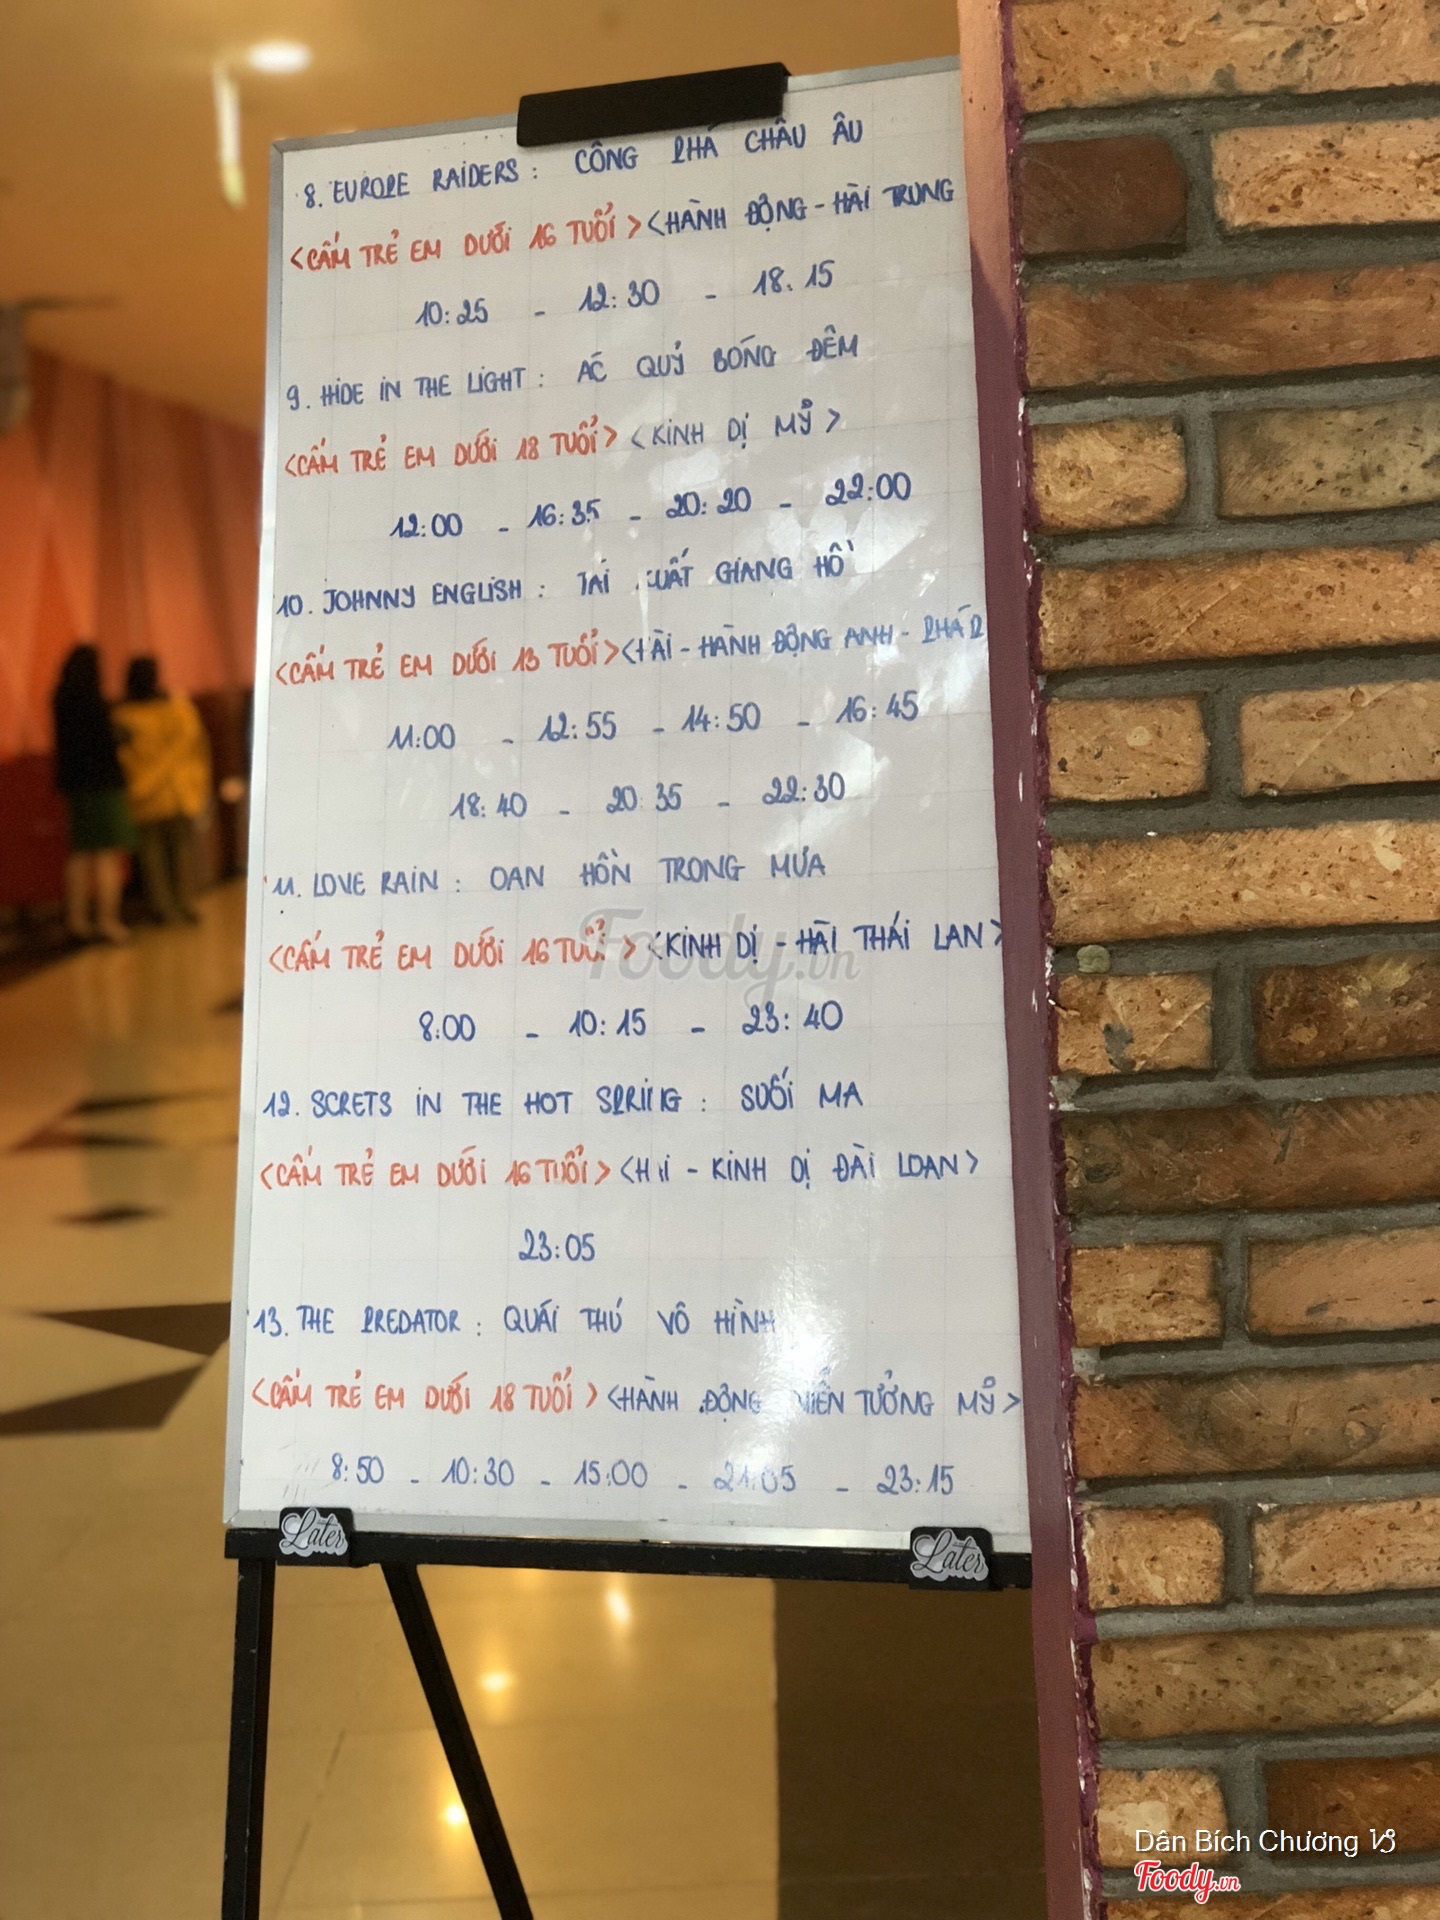 8. EUROPE RAIDERS : CÔNG PHÁ CHÂU ÂU
<CẤM TRẺ EM DƯỚI 16 TUỔI> <HÀNH ĐỘNG - HÀI TRUNG
10:25 - 12:30 - 18.15
9. HIDE IN THE LIGHT : ÁC QUỶ BÓNG ĐÊM
<CẤM TRẺ EM DƯỚI 18 TUỔI> <KINH DỊ MỸ>
12:00 - 16:35 - 20:20 - 22:00
10. JOHNNY ENGLISH : TÁI XUẤT GIANG HỒ
<CẤM TRẺ EM DƯỚI 13 TUỔI> <HÀI - HÀNH ĐỘNG ANH - PHÁP
11:00 - 12:55 - 14:50 - 16:45
18:40 - 20:35 - 22:30
11. LOVE RAIN : OAN HỒN TRONG MƯA
<CẤM TRẺ EM DƯỚI 16 TUỔI> <KINH DỊ - HÀI THÁI LAN>
Foody.vn
8:00 - 10:15 - 23:40
12. SCRETS IN THE HOT SPRING : SUỐI MA
<CẤM TRẺ EM DƯỚI 16 TUỔI> <HÀI - KINH DỊ ĐÀI LOAN>
23:05
13. THE PREDATOR : QUÁI THÚ VÔ HÌNH
<CẤM TRẺ EM DƯỚI 18 TUỔI> <HÀNH ĐỘNG VIỄN TƯỞNG MỸ>
8:50 - 10:30 - 15:00 - 21:05 - 23:15
Later
Later
Dân Bích Chương
Foody.vn